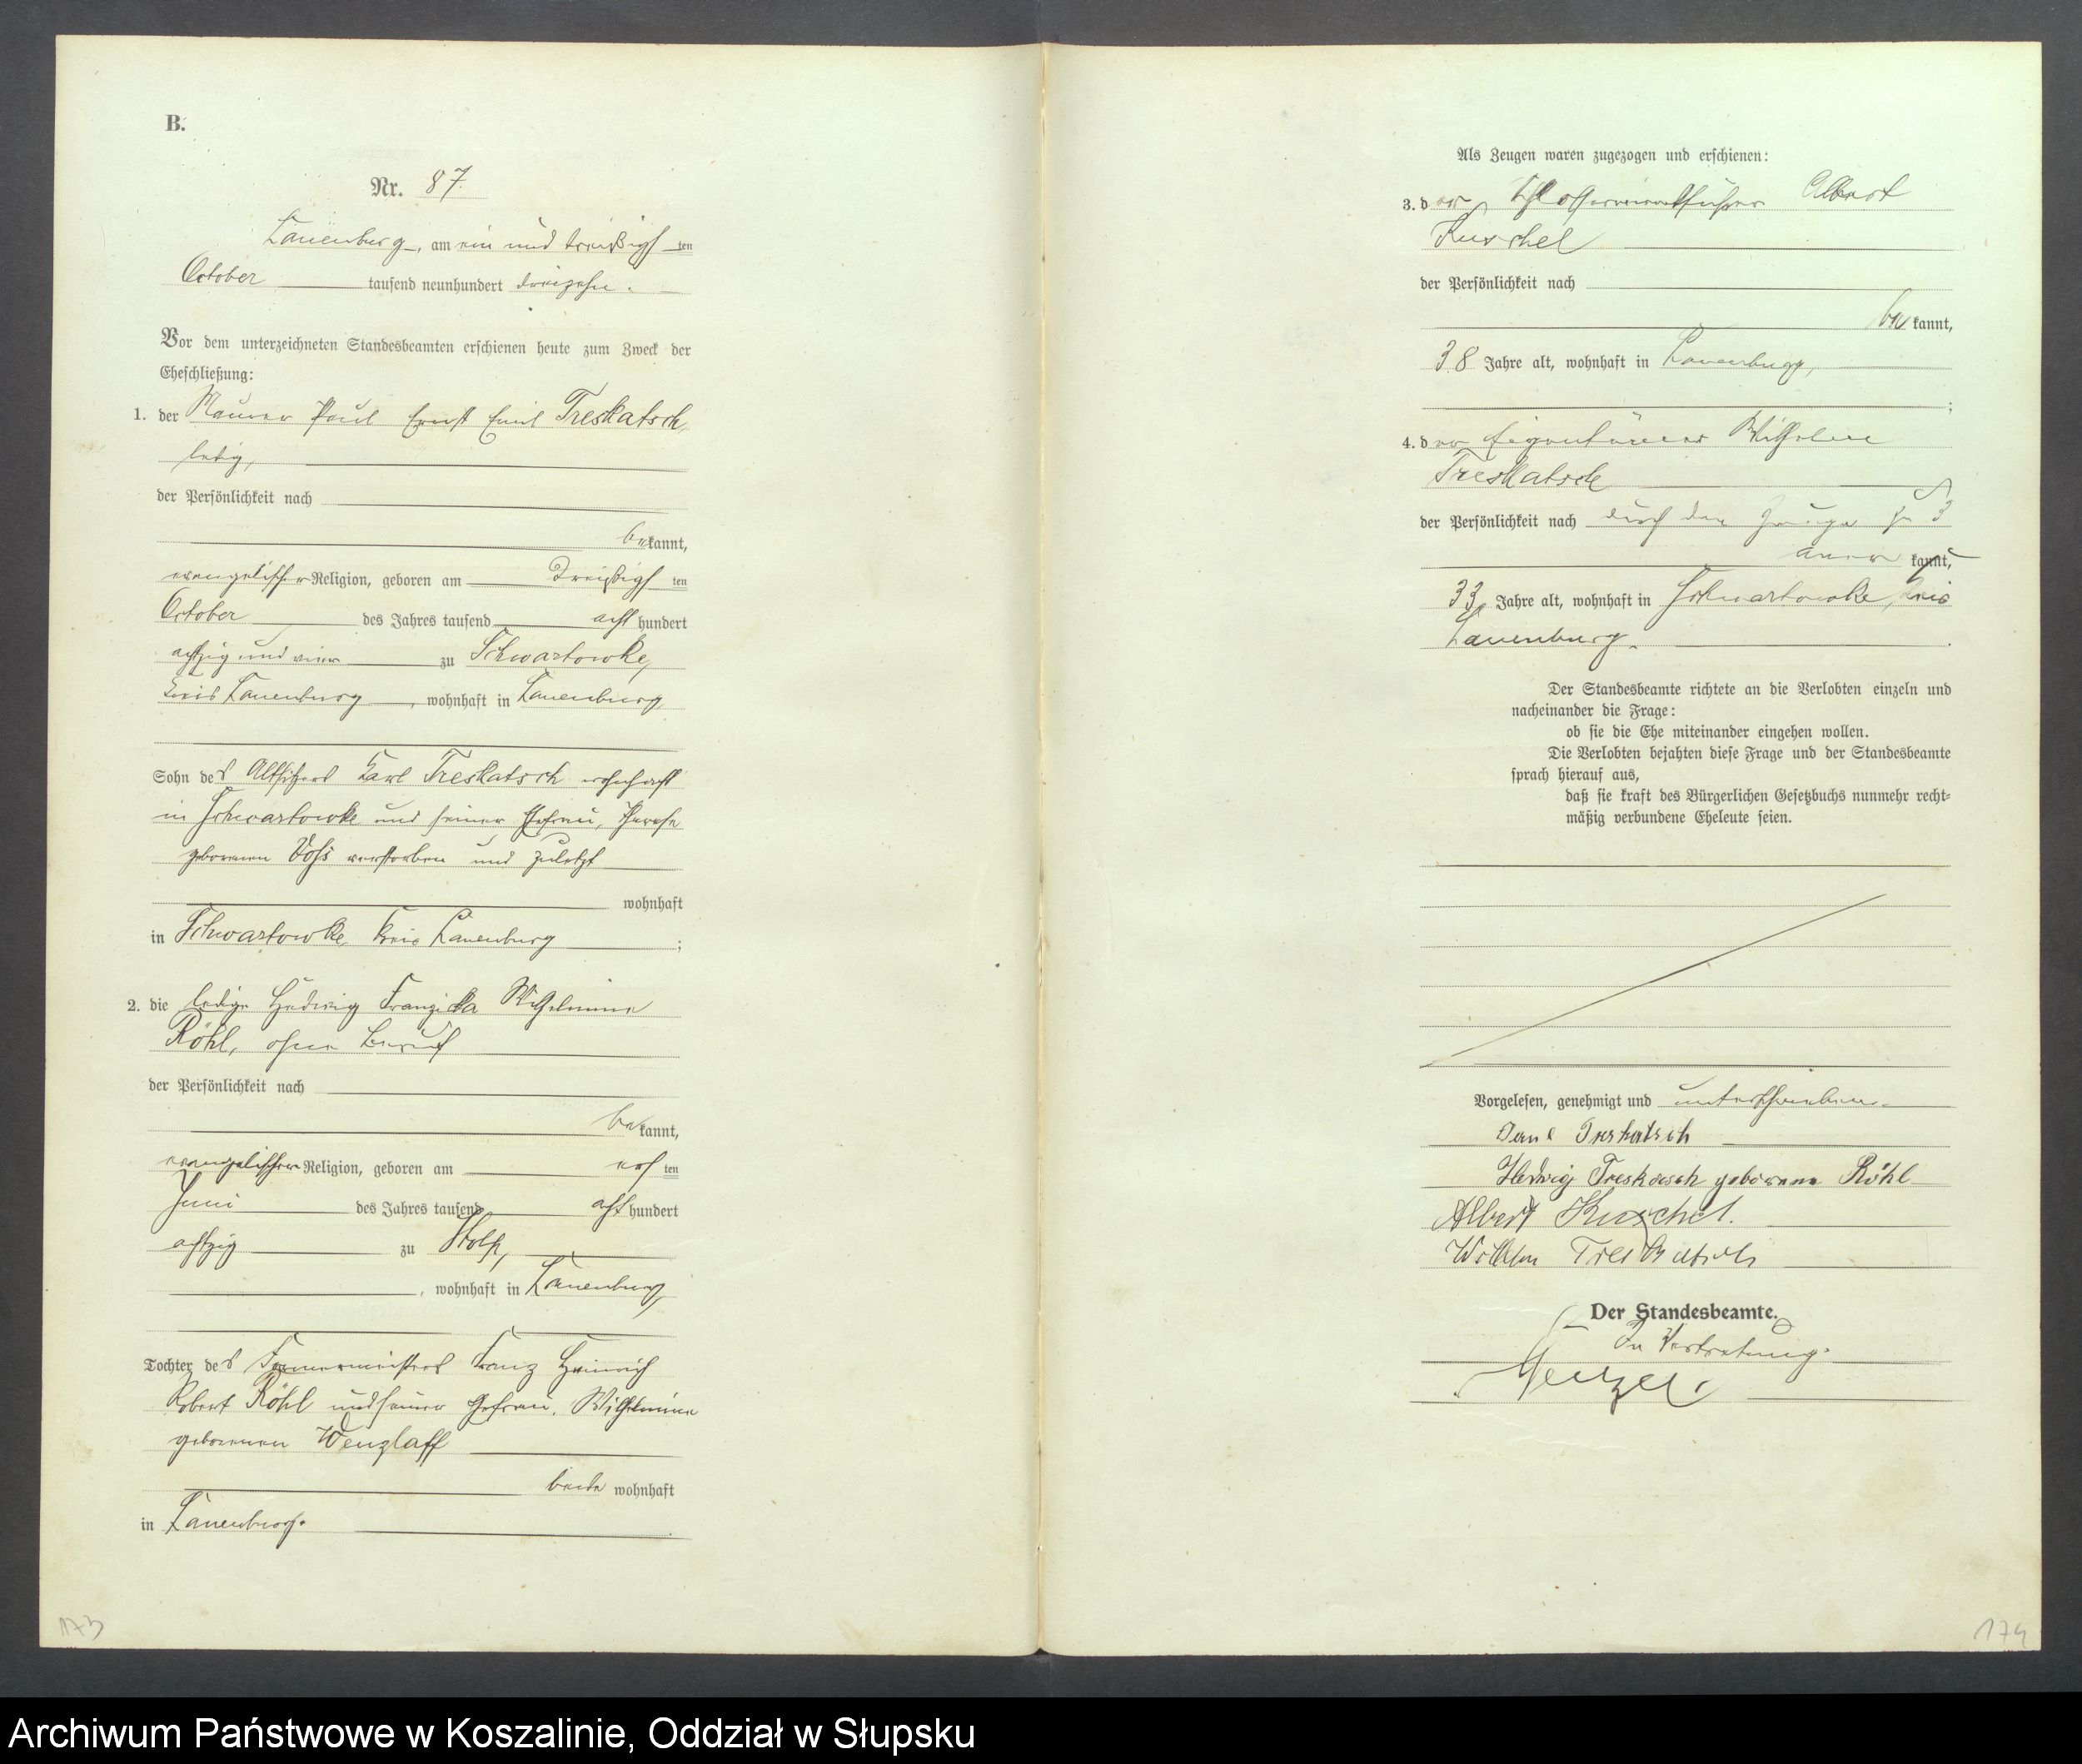 B.
Nr. 87.
Lauenburg, am ein und dreißigsten
October tausend neunhundert dreizehn.
Vor dem unterzeichneten Standesbeamten erschienen heute zum Zweck der
Eheschließung:
1. der Maurer Paul Ernst Emil Treskatsch,
ledig,
der Persönlichkeit nach
bekannt,
evangelischer Religion, geboren am dreißigsten
October des Jahres tausend acht hundert
achtzig und vier zu Schwartowke,
Kreis Lauenburg, wohnhaft in Lauenburg,
Sohn des Altsitzers Karl Treskatsch wohnhaft
in Schwartowke und seiner Ehefrau, Therese
geborenen Voß verstorben und zuletzt
wohnhaft
in Schwartowke Kreis Lauenburg;
2. die ledige Hedwig Franziska Wilhelmine
Röhl, ohne Beruf
der Persönlichkeit nach
bekannt,
evangelischer Religion, geboren am ersten
Juni des Jahres tausend acht hundert
achtzig zu Stolp,
, wohnhaft in Lauenburg,
Tochter des Formermeisters Franz Heinrich
Robert Röhl und seiner Ehefrau, Wilhelmine
geborenen Wenzlaff
beide wohnhaft
in Lauenburg.
173
Als Zeugen waren zugezogen und erschienen:
3. der Albert
Kuschel
der Persönlichkeit nach
bekannt,
38 Jahre alt, wohnhaft in Lauenburg,
;
4. der Eigentümer Wilhelm
Treskatsch
der Persönlichkeit nach durch den Zeugen zu 3
anerkannt,
33 Jahre alt, wohnhaft in Schwartowke, Kreis
Lauenburg.
Der Standesbeamte richtete an die Verlobten einzeln und
nacheinander die Frage:
ob sie die Ehe miteinander eingehen wollen.
Die Verlobten bejahten diese Frage und der Standesbeamte
sprach hierauf aus,
daß sie kraft des Bürgerlichen Gesetzbuchs nunmehr recht-
mäßig verbundene Eheleute seien.
Vorgelesen, genehmigt und unterschrieben.
Paul Treskatsch
Hedwig Treskatsch geborene Röhl
Albert Kuschel.
Wilhelm Treskatsch
Der Standesbeamte.
In Vertretung.
174
Archiwum Państwowe w Koszalinie, Oddział w Słupsku